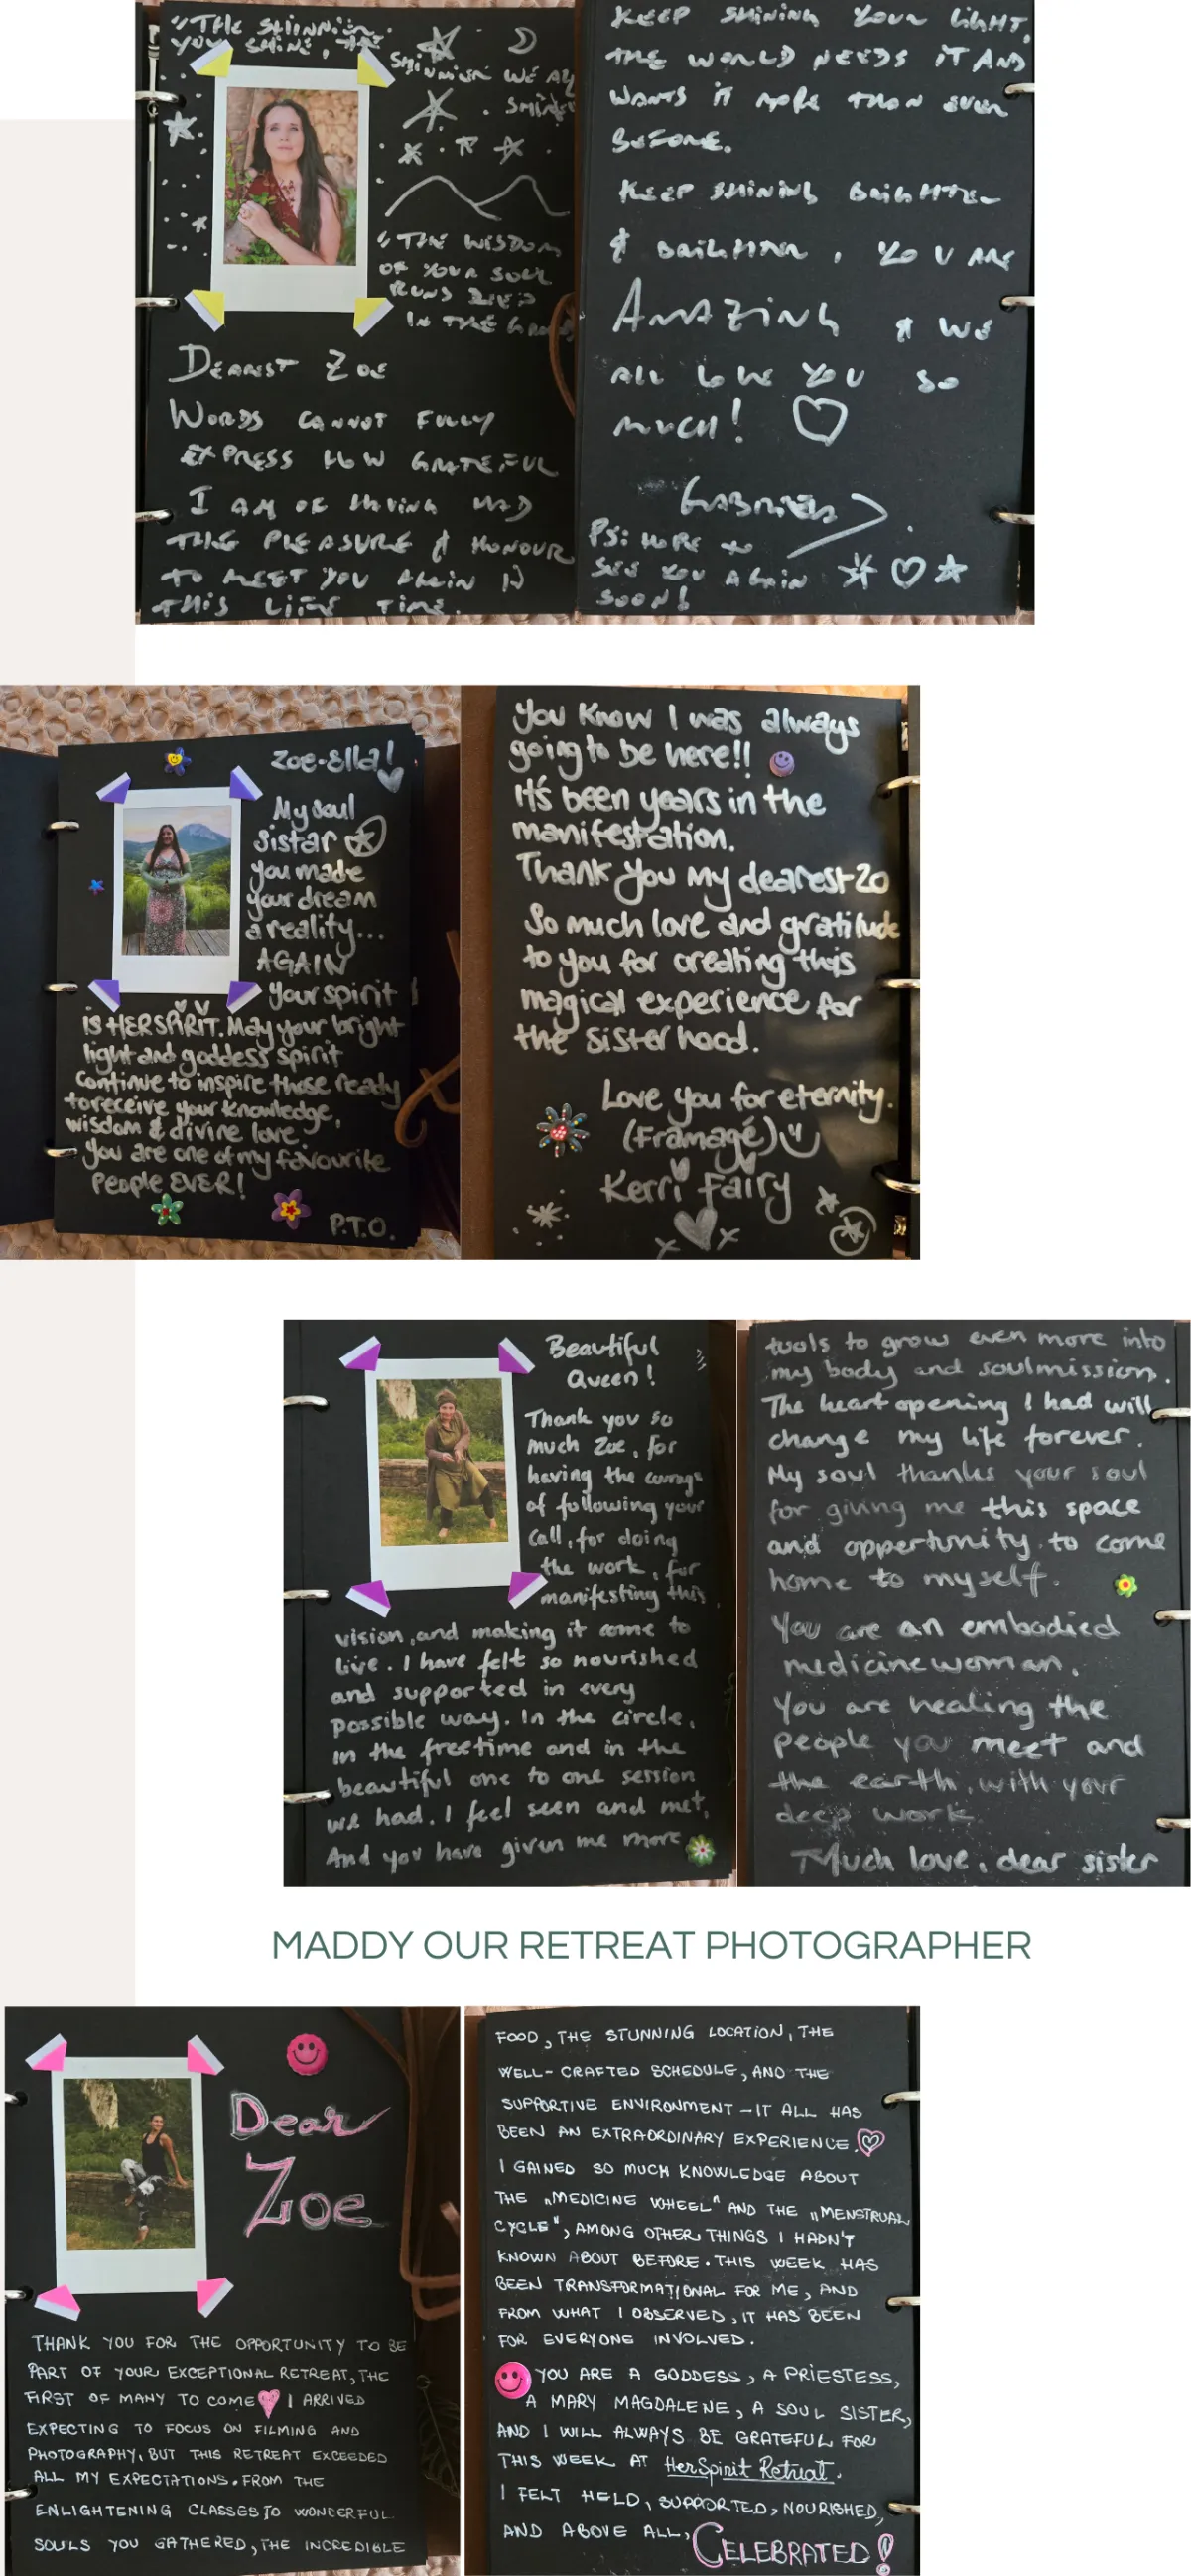 "THE SHINNIER
YOU SHINE, THE
SHINNIER WE ALL
SHINE"
"THE WISDOM
OF YOUR SOUL
RUNS DEEP
IN THE
DEAREST ZOE
WORDS CANNOT FULLY
EXPRESS HOW GRATEFUL
I AM OF HAVING HAD
THE PLEASURE & HONOUR
TO MEET YOU AGAIN IN
THIS LIFE TIME.
KEEP SHINING YOUR LIGHT,
THE WORLD NEEDS IT AND
WANTS IT MORE THAN EVER
BEFORE.
KEEP SHINING BRIGHTER
& BRIGHTER, YOU ARE
AMAZING & WE
ALL LOVE YOU SO
MUCH!
PS: HOPE TO
SEE YOU AGAIN
SOON!
Zoe-Ella!
My soul
Sistar
you made
your dream
a reality...
AGAIN
Your spirit
is HERSPIRIT. May your bright
light and goddess spirit
continue to inspire those ready
to receive your knowledge,
wisdom & divine love.
You are one of my favourite
People EVER!
P.T.O.
You Know I was always
going to be here!!
It's been years in the
manifestation.
Thank You My dearest Zo
So much love and gratitude
to you for creating this
magical experience for
the sisterhood.
Love you for eternity.
(Framagé)
Kerri Fairy
x x
Beautiful
Queen!
Thank you so
much Zoe, for
having the courage
of following your
call, for doing
the work, for
manifesting this
vision, and making it come to
live. I have felt so nourished
and supported in every
possible way. In the circle,
in the freetime and in the
beautiful one to one session
we had. I feel seen and met,
And you have given me more
tools to grow even more into
my body and soulmission.
The heart opening I had will
change my life forever.
My soul thanks your soul
for giving me this space
and oppertunity to come
home to myself.
You are an embodied
medicinewoman.
You are healing the
people you meet and
the earth, with your
deep work
Much love, dear sister
MADDY OUR RETREAT PHOTOGRAPHER
Dear
Zoe
THANK YOU FOR THE OPPORTUNITY TO BE
PART OF YOUR EXCEPTIONAL RETREAT, THE
FIRST OF MANY TO COME I ARRIVED
EXPECTING TO FOCUS ON FILMING AND
PHOTOGRAPHY, BUT THIS RETREAT EXCEEDED
ALL MY EXPECTATIONS. FROM THE
ENLIGHTENING CLASSES TO WONDERFUL
SOULS YOU GATHERED, THE INCREDIBLE
FOOD, THE STUNNING LOCATION, THE
WELL-CRAFTED SCHEDULE, AND THE
SUPPORTIVE ENVIRONMENT – IT ALL HAS
BEEN AN EXTRAORDINARY EXPERIENCE.
I GAINED SO MUCH KNOWLEDGE ABOUT
THE „MEDICINE WHEEL" AND THE „MENSTRUAL
CYCLE", AMONG OTHER THINGS I HADN'T
KNOWN ABOUT BEFORE. THIS WEEK HAS
BEEN TRANSFORMATIONAL FOR ME, AND
FROM WHAT I OBSERVED, IT HAS BEEN
FOR EVERYONE INVOLVED.
YOU ARE A GODDESS, A PRIESTESS,
A MARY MAGDALENE, A SOUL SISTER,
AND I WILL ALWAYS BE GRATEFUL FOR
THIS WEEK AT HerSpirit Retreat.
I FELT HELD, SUPPORTED, NOURISHED,
AND ABOVE ALL, CELEBRATED!